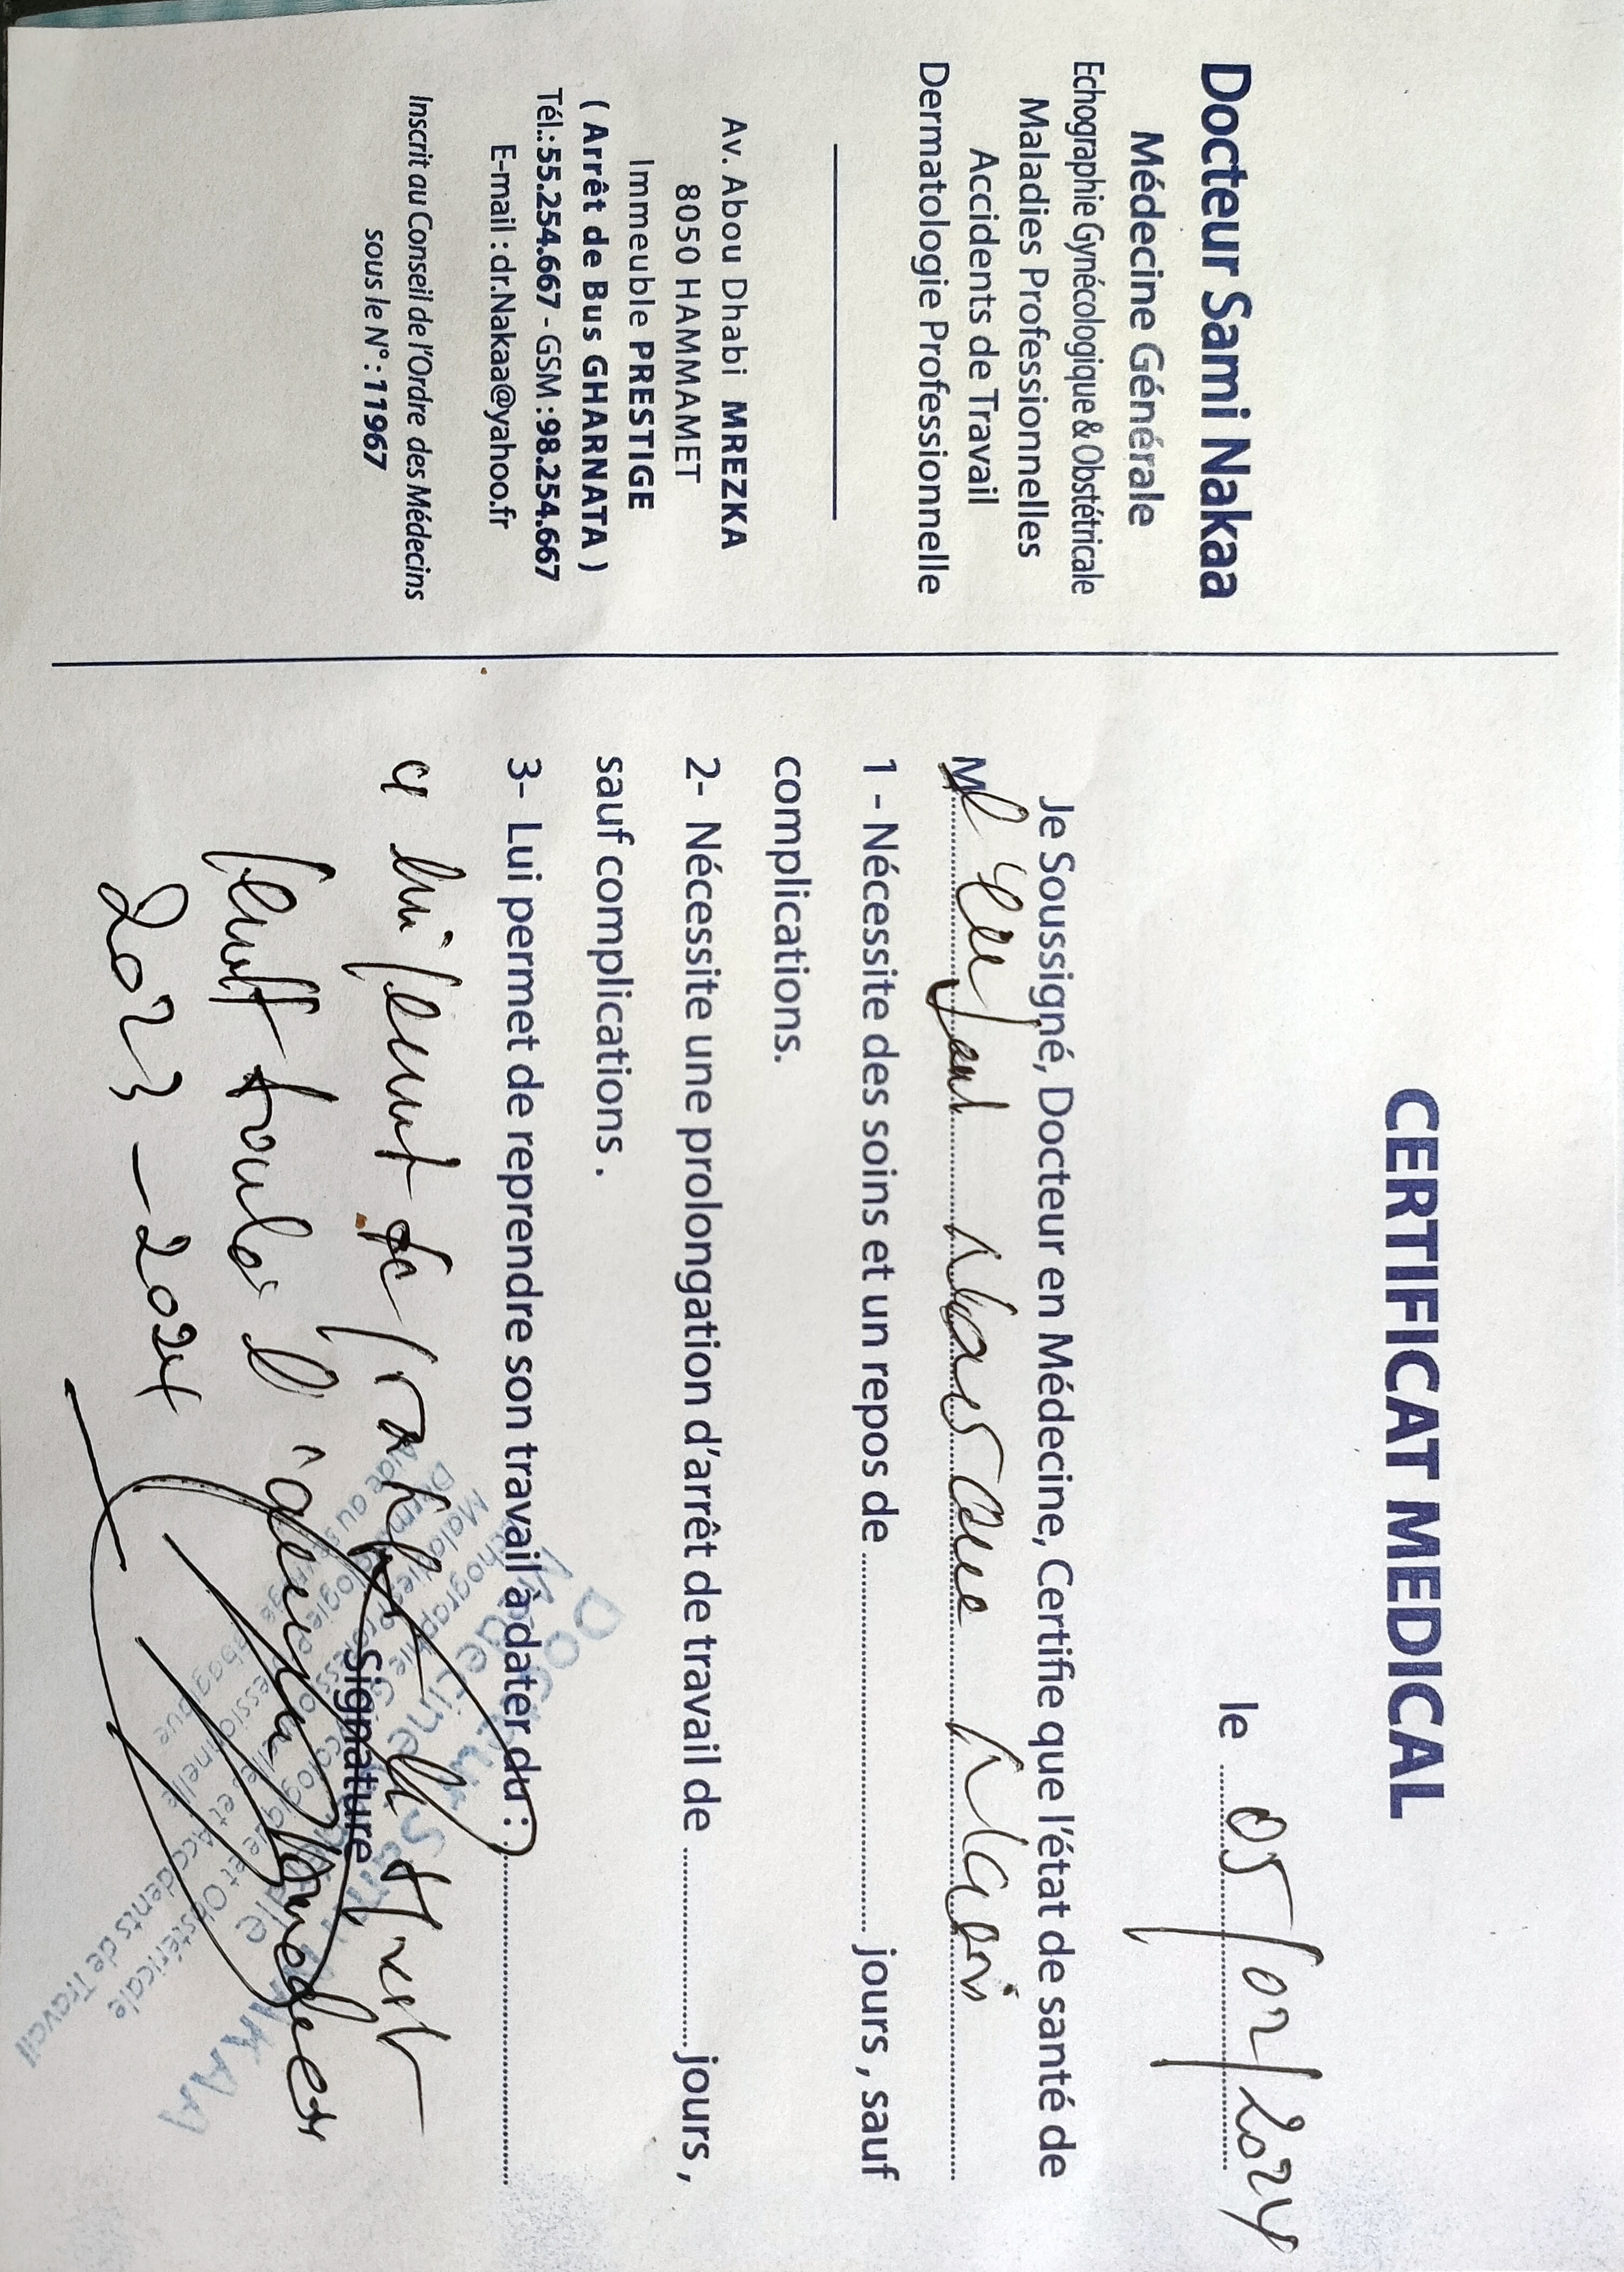 Docteur Sami Nakaa
Médecine Générale
Echographie Gynécologique & Obstétricale
Maladies Professionnelles
Accidents de Travail
Dermatologie Professionnelle
Av. Abou Dhabi MREZKA
8050 HAMMAMET
Immeuble PRESTIGE
( Arrêt de Bus GHARNATA )
Tél.: 55.254.667 - GSM : 98.254.667
E-mail : dr.Nakaa@yahoo.fr
Inscrit au Conseil de l'Ordre des Médecins
sous le N° : 11967
CERTIFICAT MEDICAL
le 05/02/2024
Je Soussigné, Docteur en Médecine, Certifie que l'état de santé de
1 - Nécessite des soins et un repos de jours , sauf
complications.
2- Nécessite une prolongation d'arrêt de travail de jours ,
sauf complications .
3- Lui permet de reprendre son travail à dater du :
4 lui permet de
2023 - 2024
Signature
Docteur Sami NAKAA
Maladies Professionnelles et Accidents de Travail